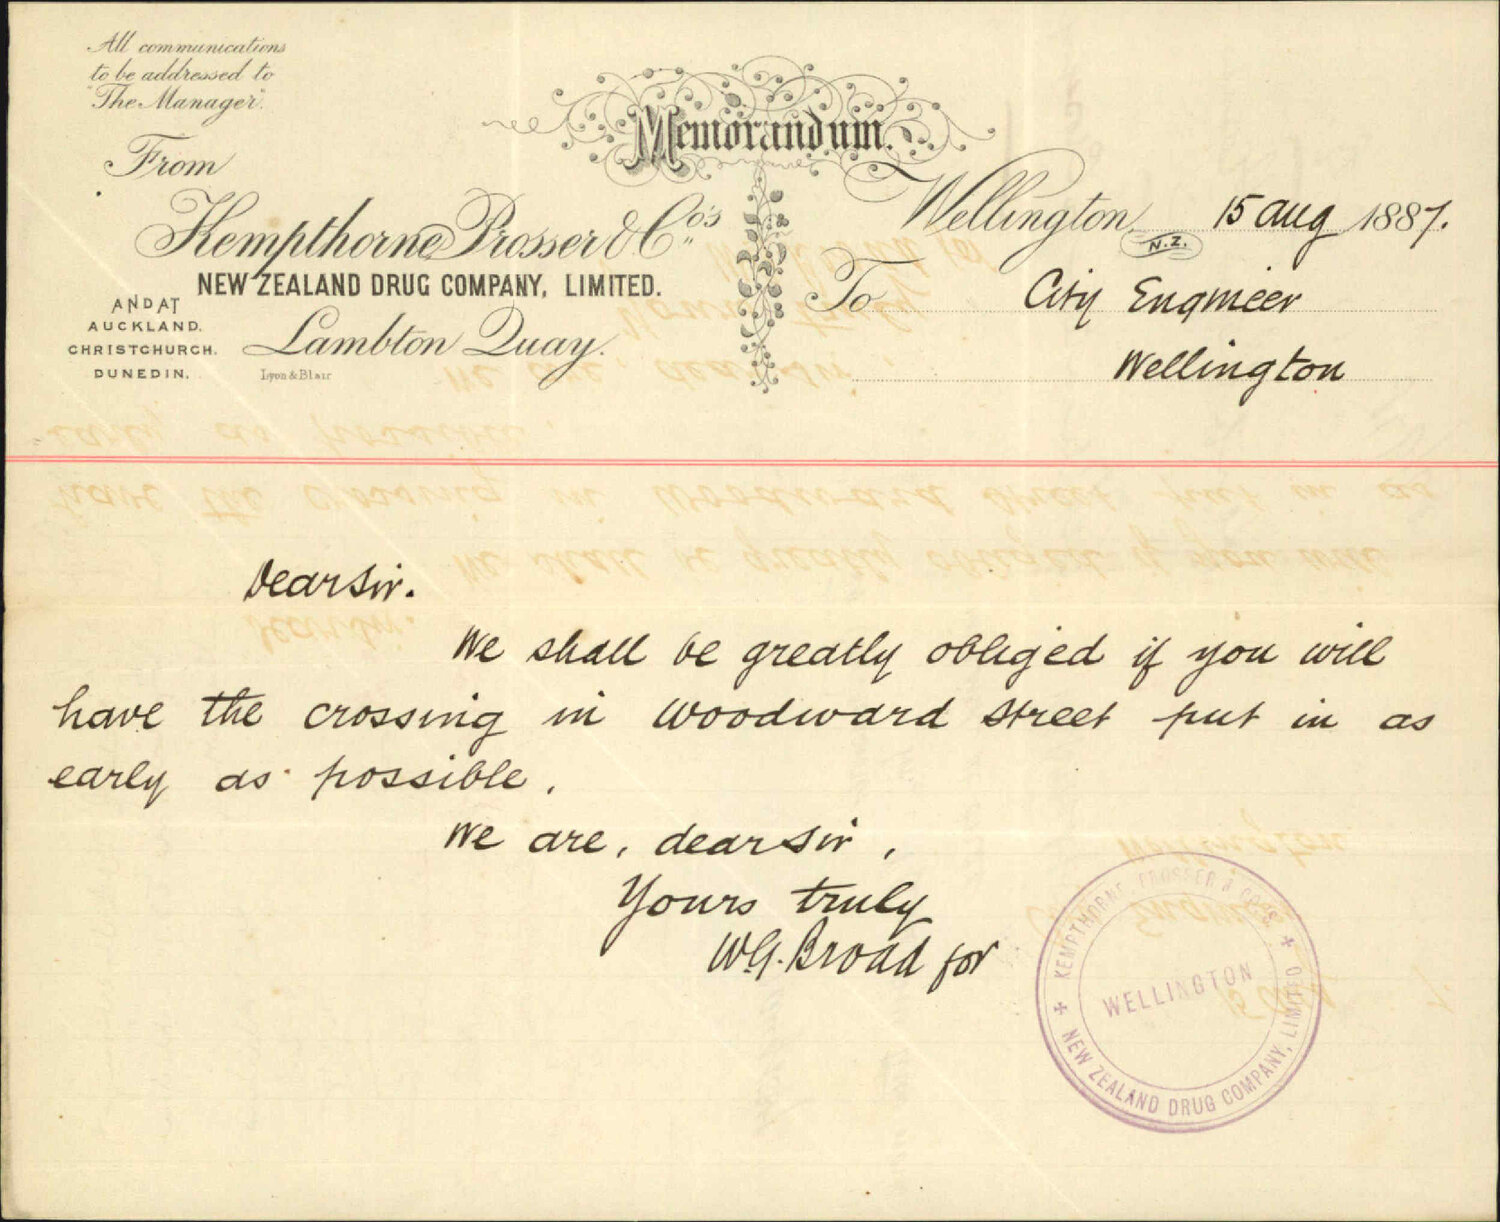 All communications
to be addressed to
"The Manager".
Memorandum.
From
Kempthorne Prosser & Co's
NEW ZEALAND DRUG COMPANY, LIMITED.
AND AT
AUCKLAND.
CHRISTCHURCH.
DUNEDIN.
Lambton Quay.
Lyon & Blair
Wellington, N.Z. 15 Aug 1887.
To City Engineer
Wellington
Dear Sir.
We shall be greatly obliged if you will
have the crossing in Woodward Street put in as
early as possible.
We are, dear Sir,
Yours truly
W.G. Broad for
KEMPTHORNE, PROSSER & CO'S
WELLINGTON
NEW ZEALAND DRUG COMPANY, LIMITED